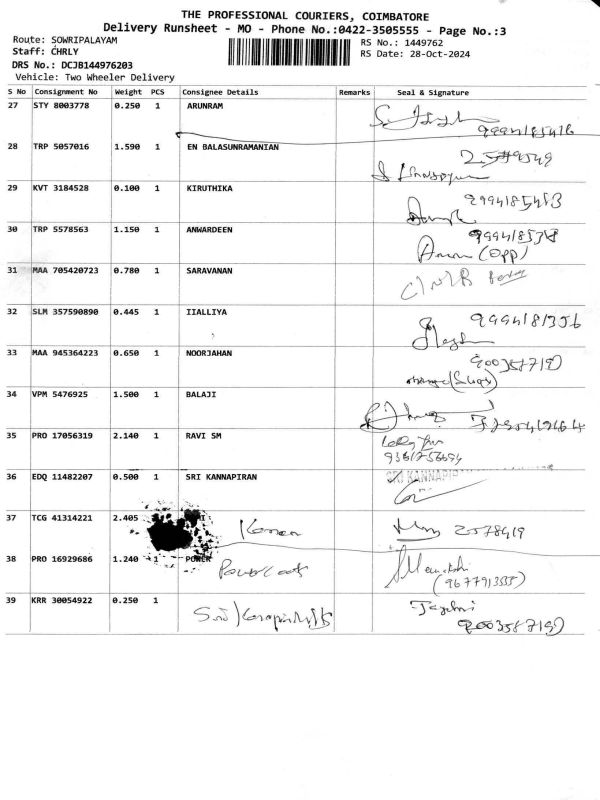 THE PROFESSIONAL COURIERS, COIMBATORE
Delivery Runsheet - MO - Phone No.:0422-3505555 - Page No.:3
Route: SOWRIPALAYAM
RS No.: 1449762
Staff: CHRLY
RS Date: 28-Oct-2024
DRS No.: DCJB144976203
Vehicle: Two Wheeler Delivery
S No Consignment No Weight PCS Consignee Details Remarks Seal & Signature
27 STY 8003778 0.250 1 ARUNRAM
28 TRP 5057016 1.590 1 EN BALASUNRAMANIAN
29 KVT 3184528 0.100 1 KIRUTHIKA
30 TRP 5578563 1.150 1 ANWARDEEN
(opp)
31 MAA 705420723 0.780 1 SARAVANAN
32 SLM 357590890 0.445 1 IIALLIYA
9994181356
33 MAA 945364223 0.650 1 NOORJAHAN
34 VPM 5476925 1.500 1 BALAJI
35 PRO 17056319 2.140 1 RAVI SM
36 EDQ 11482207 0.500 1 SRI KANNAPIRAN
SRI KANNAPIRAN
37 TCG 41314221 2.405
38 PRO 16929686 1.240 1 POWER
(9677913555)
39 KRR 30054922 0.250 1